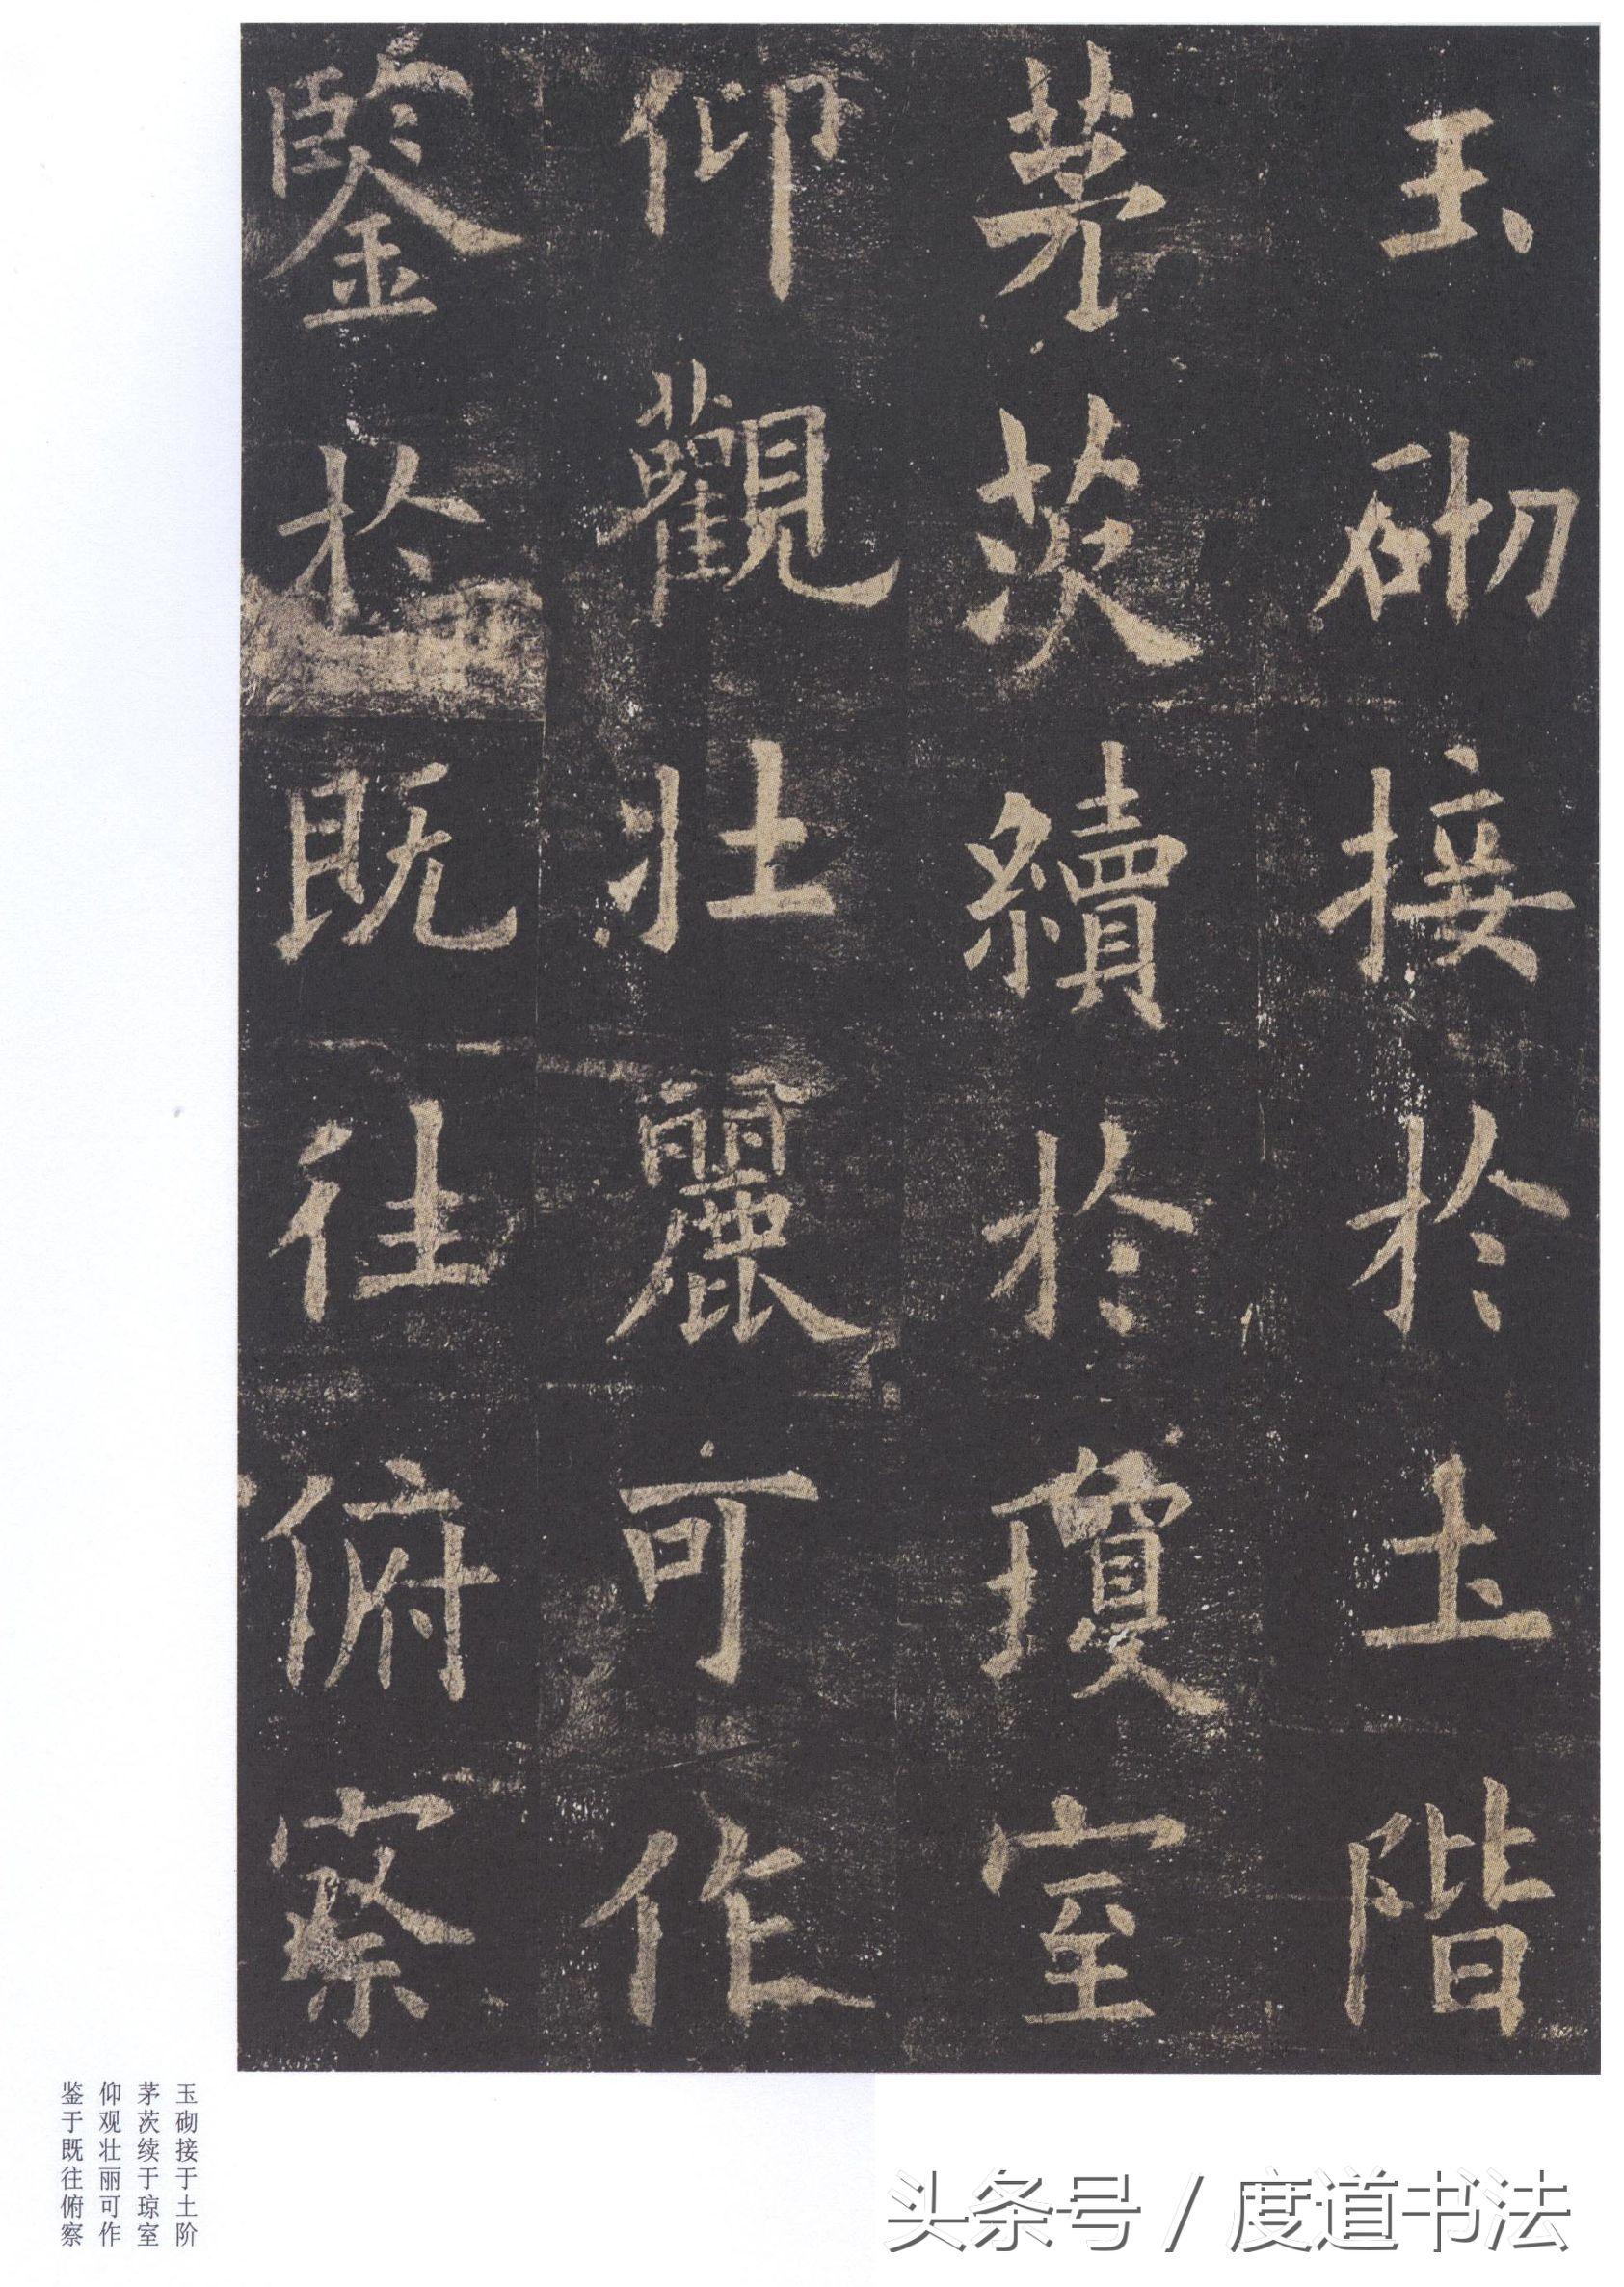 玉砌接於土階
茅茨續於瓊室
仰觀壯麗可作
鑒於既往俯察
玉砌接于土阶
茅茨续于琼室
仰观壮丽可作
鉴于既往俯察
头条号 / 度道书法